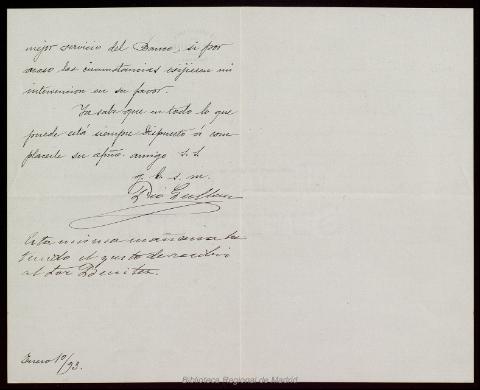 mejor servicio del Banco, si por
acaso las circunstancias exijiesen mi
intervencion en su favor.
Ya sabe que en todo lo que
puede está siempre dispuesto á com
placerle su afmo. amigo s. s.
q. b. s. m.
Esta misma mañana he
tenido el gusto de recibir
al Sor Benitez.
Enero 10/93.
Biblioteca Regional de Madrid